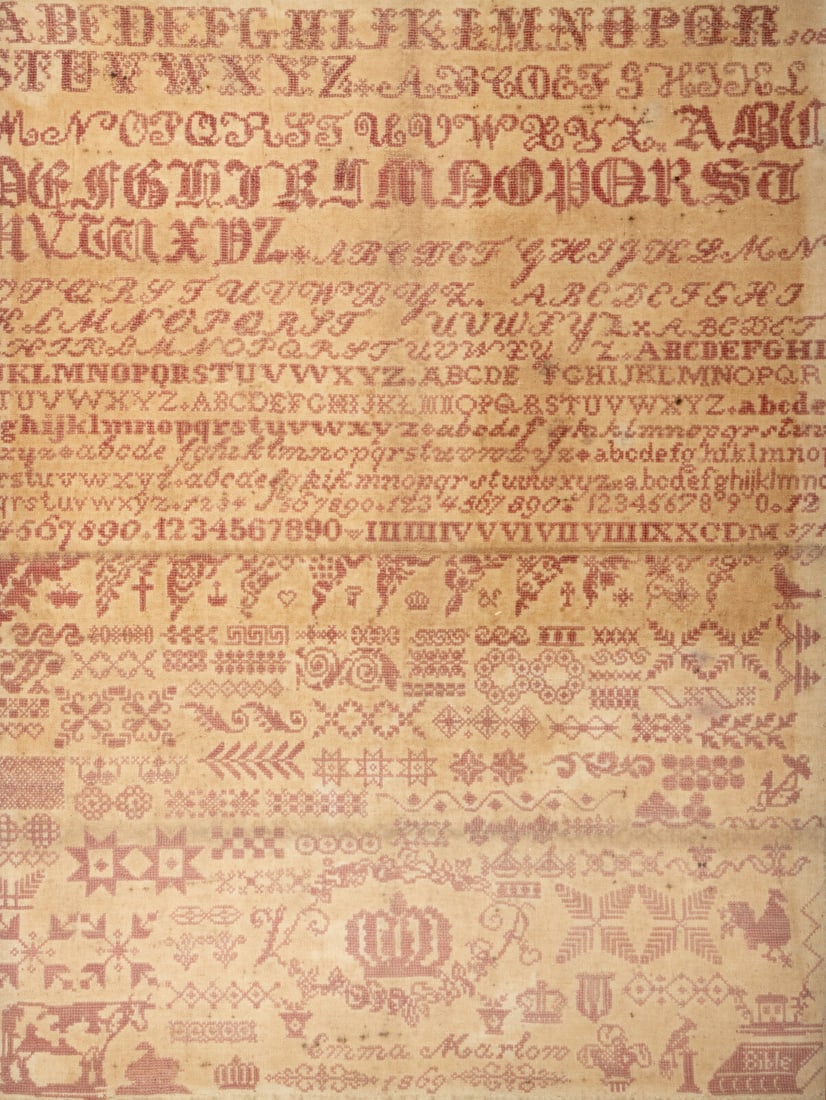 ABCDEFGHIJKLMNOPQR
STUVWXYZ ABCDEFGHIKL
MNOPQRSTUVWXYZ. ABC
DEFGHIKLMNOPQRST
UVWXYZ ABCDEF GHIJKLMN
OPQRSTUVWXYZ. ABCDEFGHI
KLMNOPQRST UVWXYZ ABCDEF
HIKLMNOPQRST UVWXY Z. ABCDEFGHI
JKLMNOPQRSTUVWXYZ. ABCDE FGHIJKLMNOPQR
TUVWXYZ. ABCDEFGHIJKLMNOPQRSTUVWXYZ. abcde
ghijklmnopqrstuvwxyz abcdefghiklmnopqrstuv
xyz abcdefghiklmnopqrstuvwxyz abcdefghiklmnop
rstuvwxyz. abcdefghiklmnopqrstuvwxyz. abcdefghijklmno
qrstuvwxyz. 1234567890. 1234567890. 1234567890. 12
4567890. 1234567890
Emma Marlow
1869
Bible